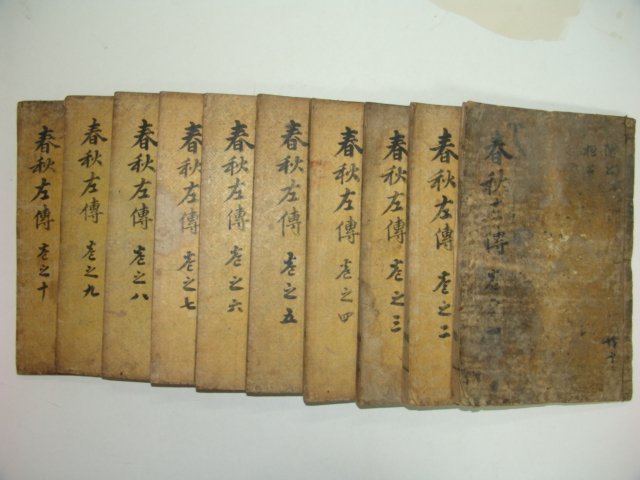 春秋左傳 卷之一
春秋左傳 卷之二
春秋左傳 卷之三
春秋左傳 卷之四
春秋左傳 卷之五
春秋左傳 卷之六
春秋左傳 卷之七
春秋左傳 卷之八
春秋左傳 卷之九
春秋左傳 卷之十